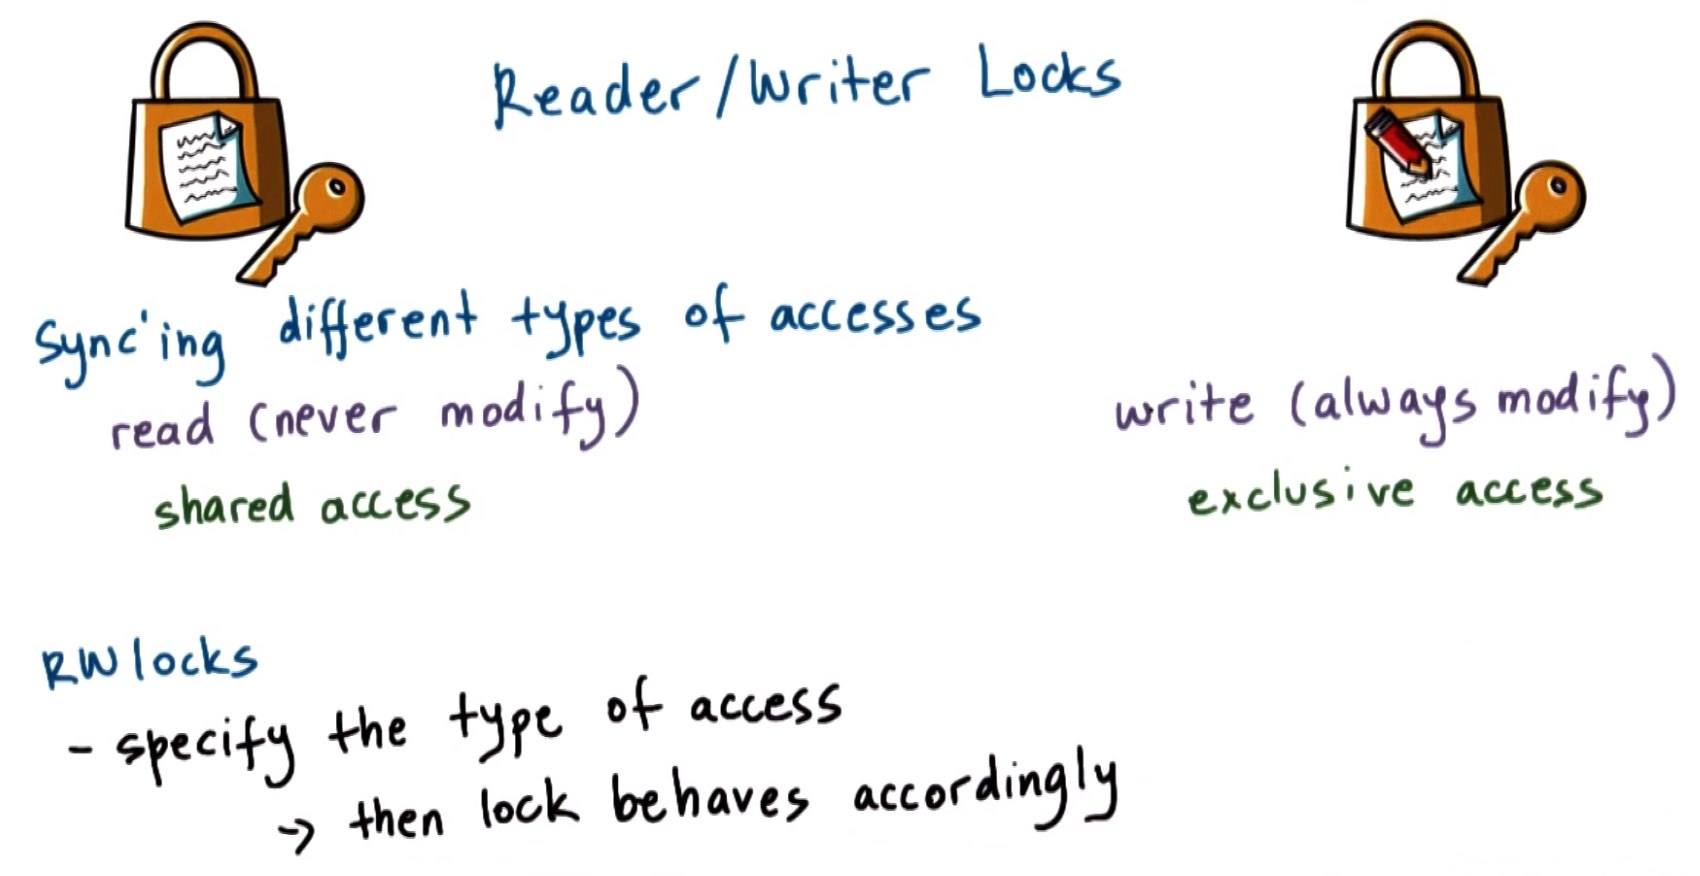 Reader/Writer Locks
Sync'ing different types of accesses
read (never modify)
write (always modify)
shared access
exclusive access
RWlocks
- specify the type of access
→ then lock behaves accordingly